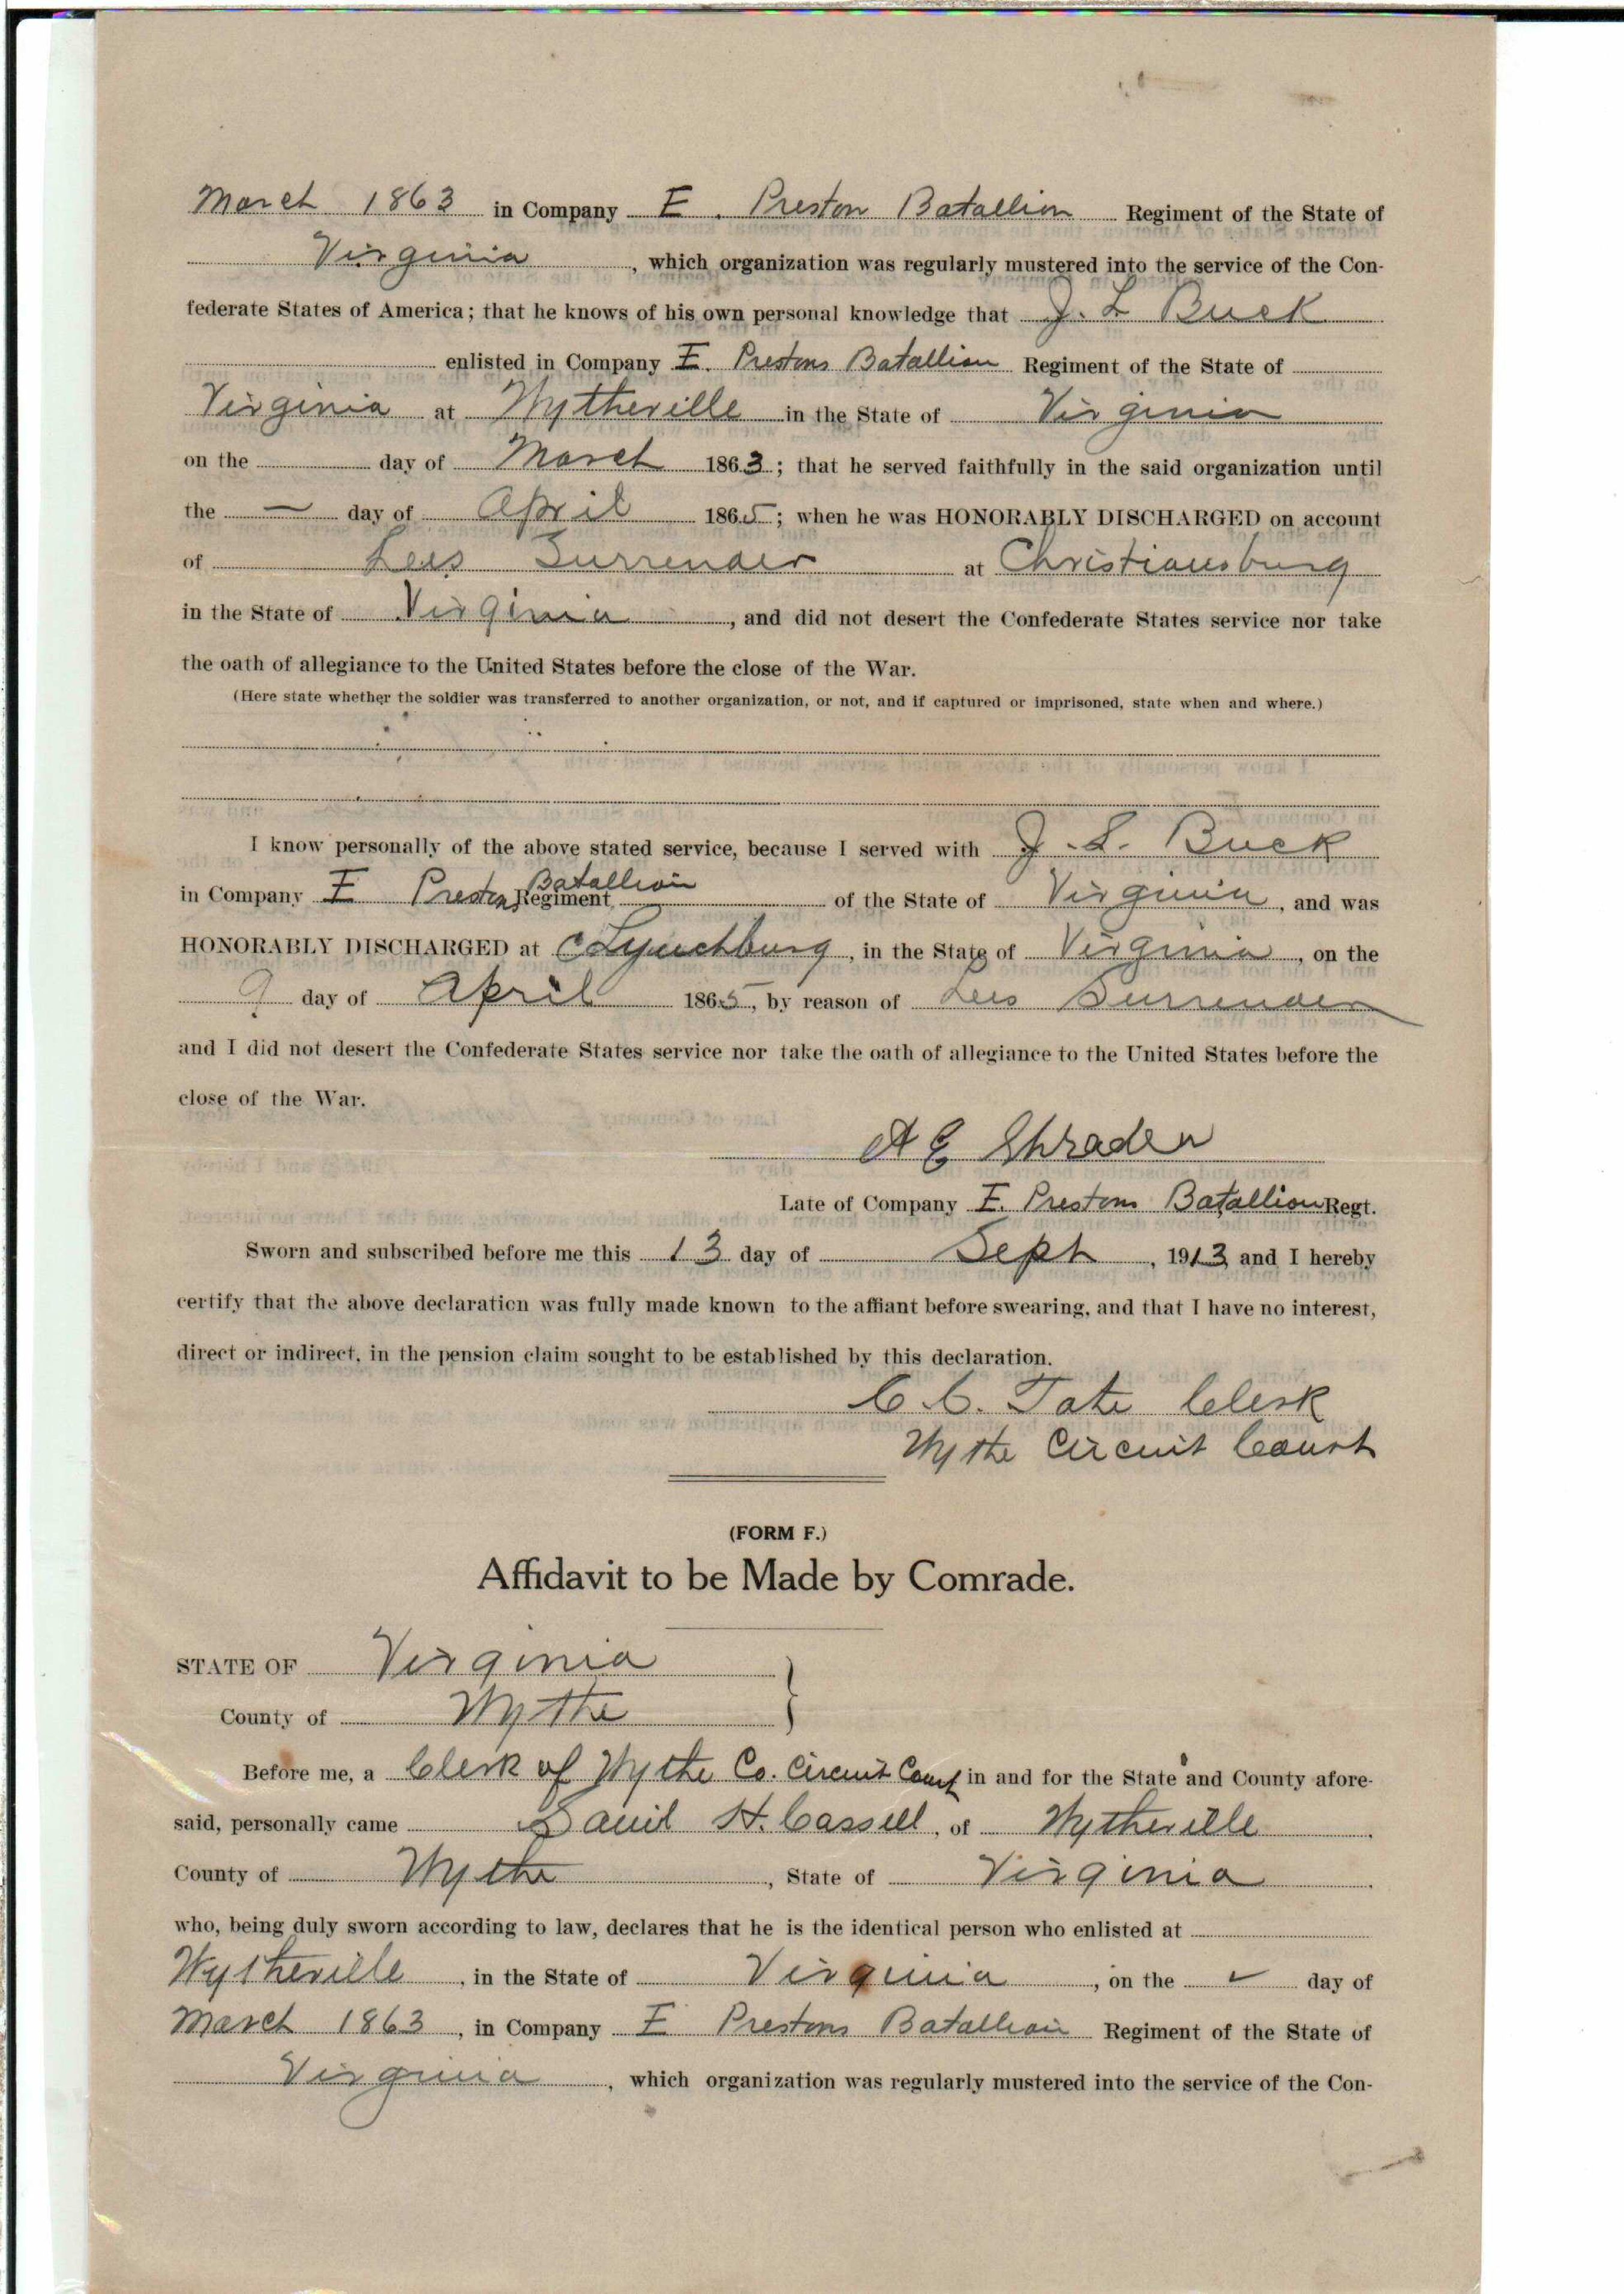 March 1863 in Company E. Preston Batallion Regiment of the State of
Virginia, which organization was regularly mustered into the service of the Con-
federate States of America; that he knows of his own personal knowledge that J. L Buck
enlisted in Company E. Prestons Batallion Regiment of the State of
Virginia at Wytheville in the State of Virginia
on the day of March 1863; that he served faithfully in the said organization until
the — day of April 1865; when he was HONORABLY DISCHARGED on account
of Lees Surrender at Christiansburg
in the State of Virginia, and did not desert the Confederate States service nor take
the oath of allegiance to the United States before the close of the War.
(Here state whether the soldier was transferred to another organization, or not, and if captured or imprisoned, state when and where.)
I know personally of the above stated service, because I served with J. L. Buck
in Company E Prestons Regiment Batallion of the State of Virginia, and was
HONORABLY DISCHARGED at Lynchburg, in the State of Virginia, on the
9 day of April 1865, by reason of Lees Surrender
and I did not desert the Confederate States service nor take the oath of allegiance to the United States before the
close of the War.
A E Shrader
Late of Company E. Prestons Batallion Regt.
Sworn and subscribed before me this 13 day of Sept, 1913 and I hereby
certify that the above declaration was fully made known to the affiant before swearing, and that I have no interest,
direct or indirect, in the pension claim sought to be established by this declaration.
C. C. Tate Clerk
Wythe Circuit Court
(FORM F.)
Affidavit to be Made by Comrade.
STATE OF Virginia
County of Wythe
Before me, a Clerk of Wythe Co. Circuit Court in and for the State and County afore-
said, personally came David H. Cassell, of Wytheville
County of Wythe, State of Virginia
who, being duly sworn according to law, declares that he is the identical person who enlisted at
Wytheville, in the State of Virginia, on the day of
March 1863, in Company E Prestons Batallion Regiment of the State of
Virginia, which organization was regularly mustered into the service of the Con-